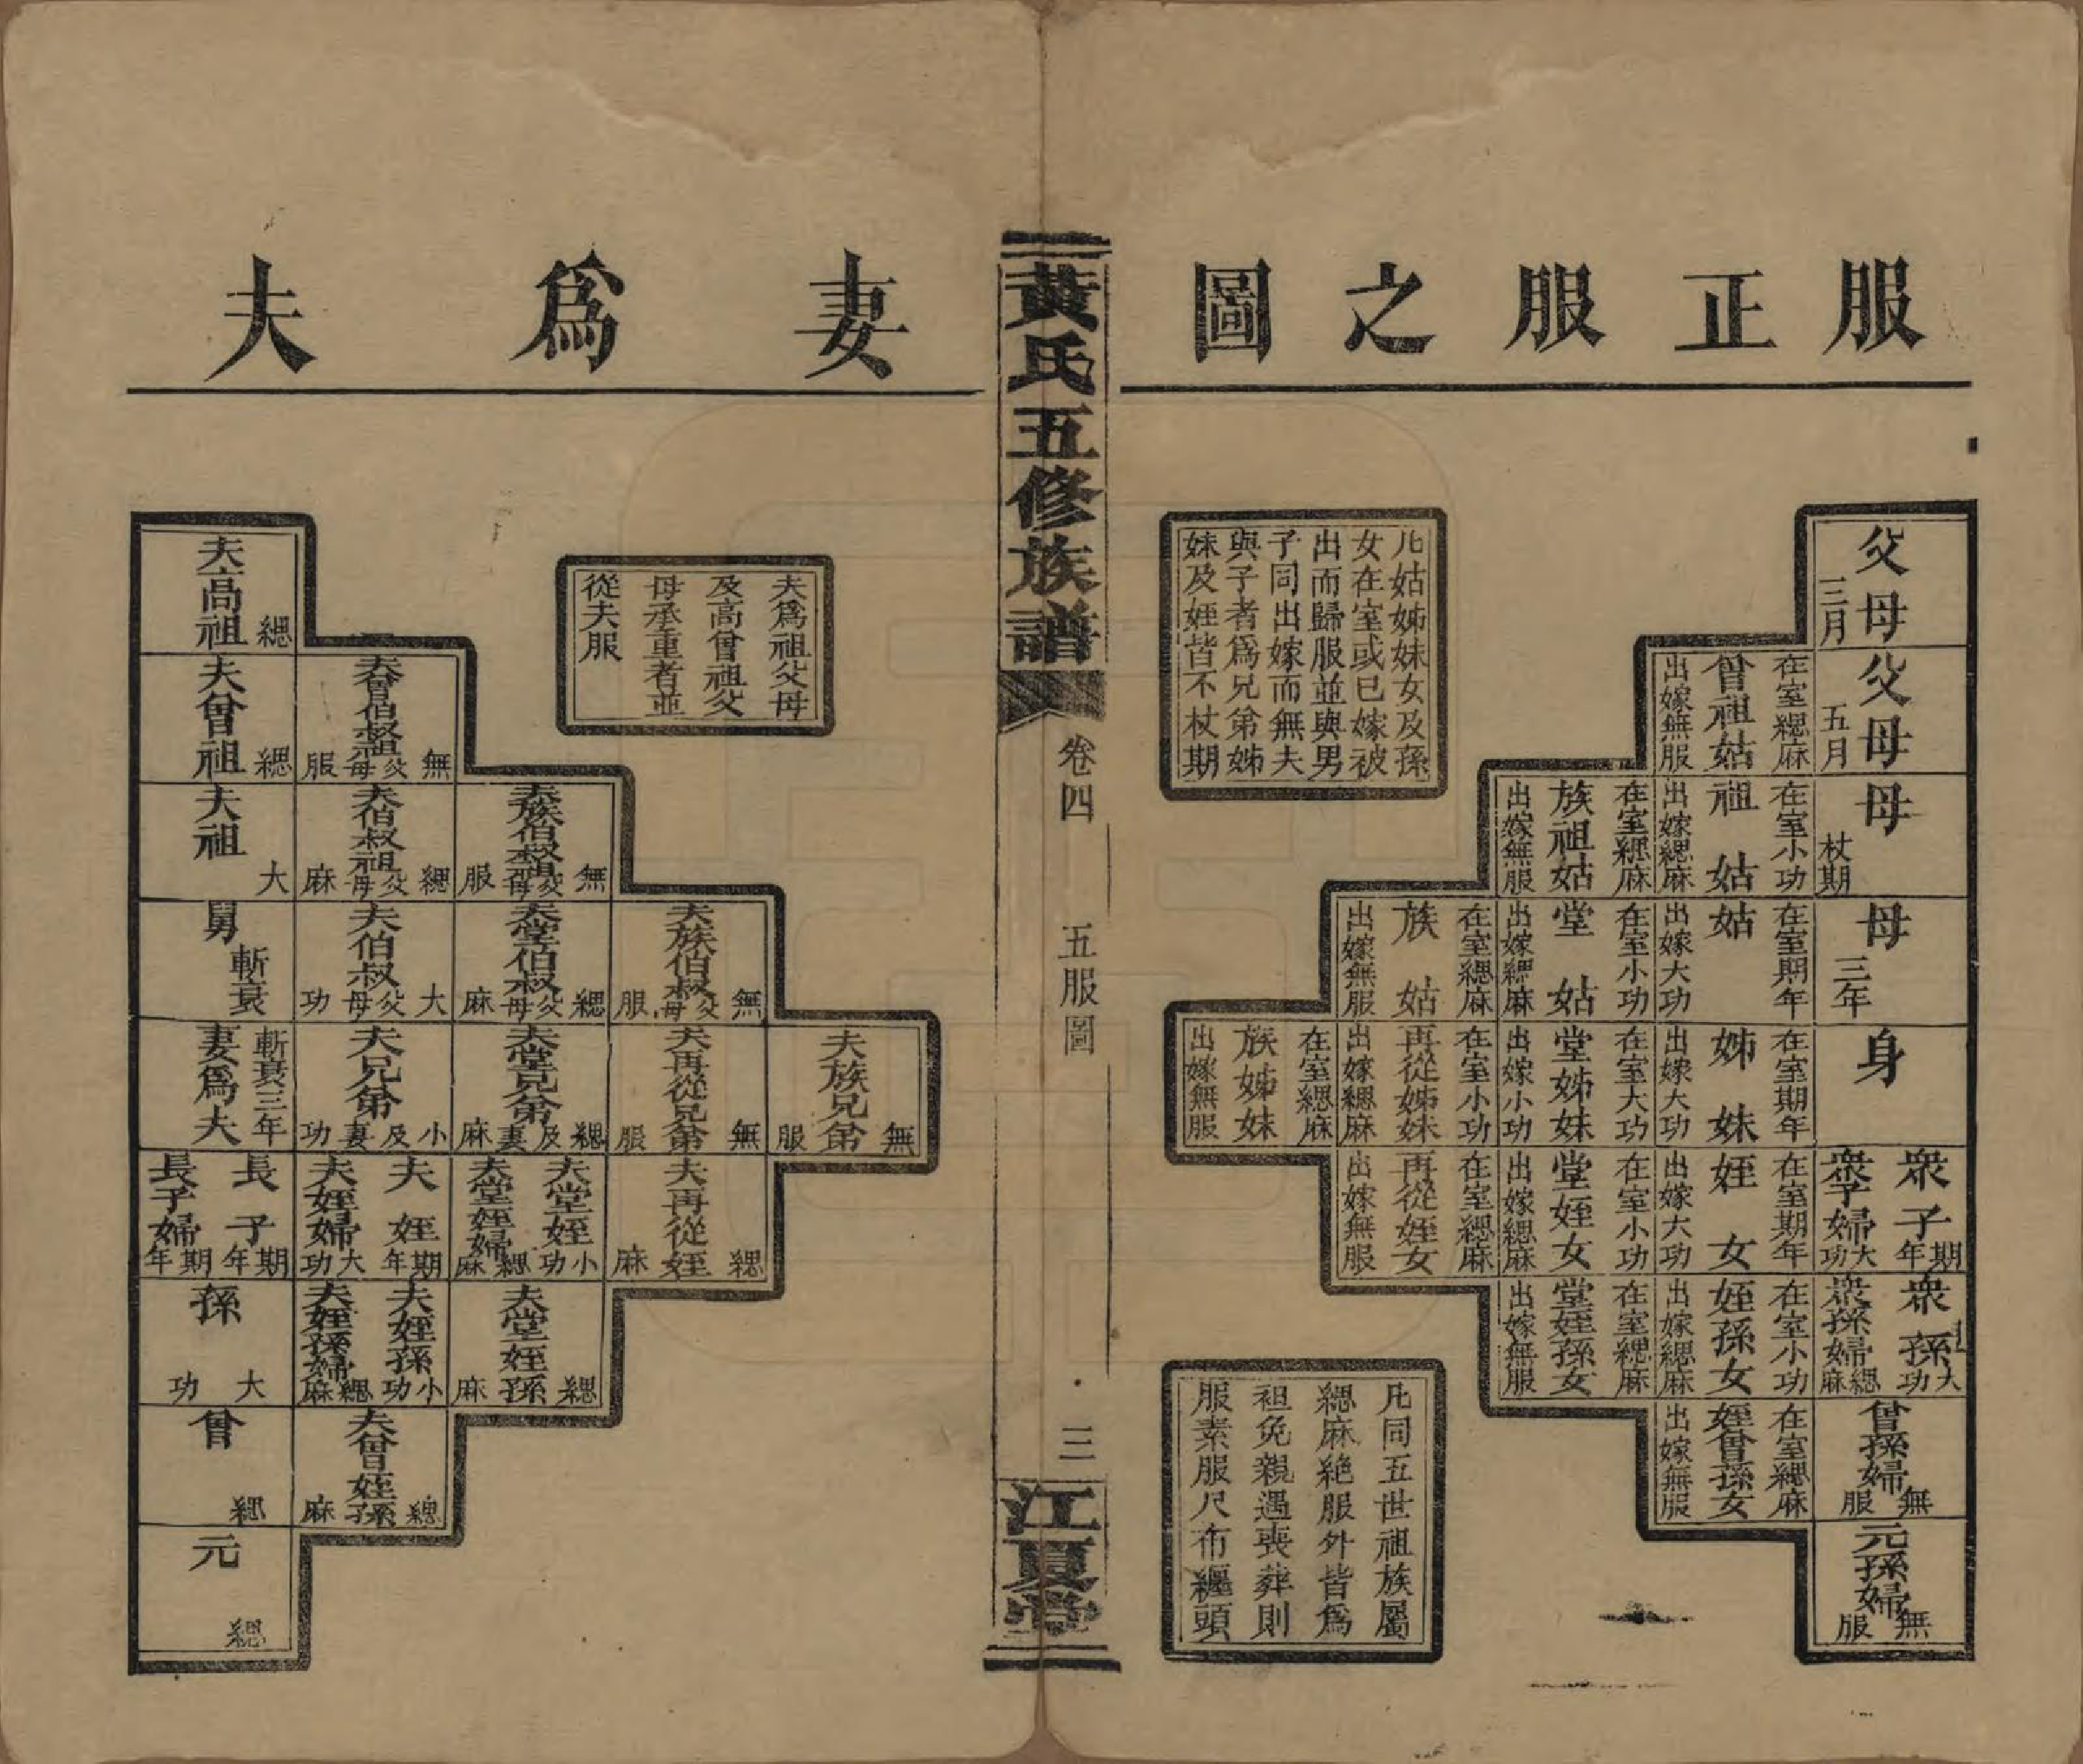 服正服之圖
父母
三月
父母
五月
曾祖姑
在室緦麻
出嫁無服
母
杖期
祖姑
在室小功
出嫁緦麻
族祖姑
在室緦麻
出嫁無服
母
三年
姑
在室期年
出嫁大功
堂姑
在室小功
出嫁緦麻
族姑
在室緦麻
出嫁無服
身
姊妹
在室期年
出嫁大功
堂姊妹
在室大功
出嫁小功
再從姊妹
在室小功
出嫁緦麻
族姊妹
在室緦麻
出嫁無服
衆子
期年
衆子婦
大功
姪女
在室期年
出嫁大功
堂姪女
在室小功
出嫁緦麻
再從姪女
在室緦麻
出嫁無服
衆孫
大功
衆孫婦
緦麻
姪孫女
在室小功
出嫁緦麻
堂姪孫女
在室緦麻
出嫁無服
曾孫婦
無服
姪曾孫女
在室緦麻
出嫁無服
元孫婦
無服
凡姑姊妹女及孫
女在室或已嫁被
出而歸服並與男
子同出嫁而無夫
與子者爲兄弟姊
妹及姪皆不杖期
凡同五世祖族屬
緦麻絶服外皆爲
袒免親遇喪葬則
服素服尺布纏頭
黃氏五修族譜
卷四
五服圖
三
江夏堂
妻爲夫
夫爲祖父母
及高曾祖父
母承重者並
從夫服
夫族兄弟
無服
夫族伯叔父母
無服
夫再從兄弟
無服
夫再從姪
緦麻
夫族伯叔祖父母
無服
夫堂伯叔父母
緦麻
夫堂兄弟及妻
緦麻
夫堂姪
小功
夫堂姪婦
緦麻
夫堂姪孫
緦麻
夫曾伯叔祖父母
無服
夫伯叔祖父母
緦麻
夫伯叔父母
大功
夫兄弟及妻
小功
夫姪
期年
夫姪婦
大功
夫姪孫
小功
夫姪孫婦
緦麻
夫曾姪孫
緦麻
夫高祖
緦
夫曾祖
緦
夫祖
大
舅
斬衰
斬衰三年
妻爲夫
長子
期年
長子婦
期年
孫
大功
曾
緦
元
緦